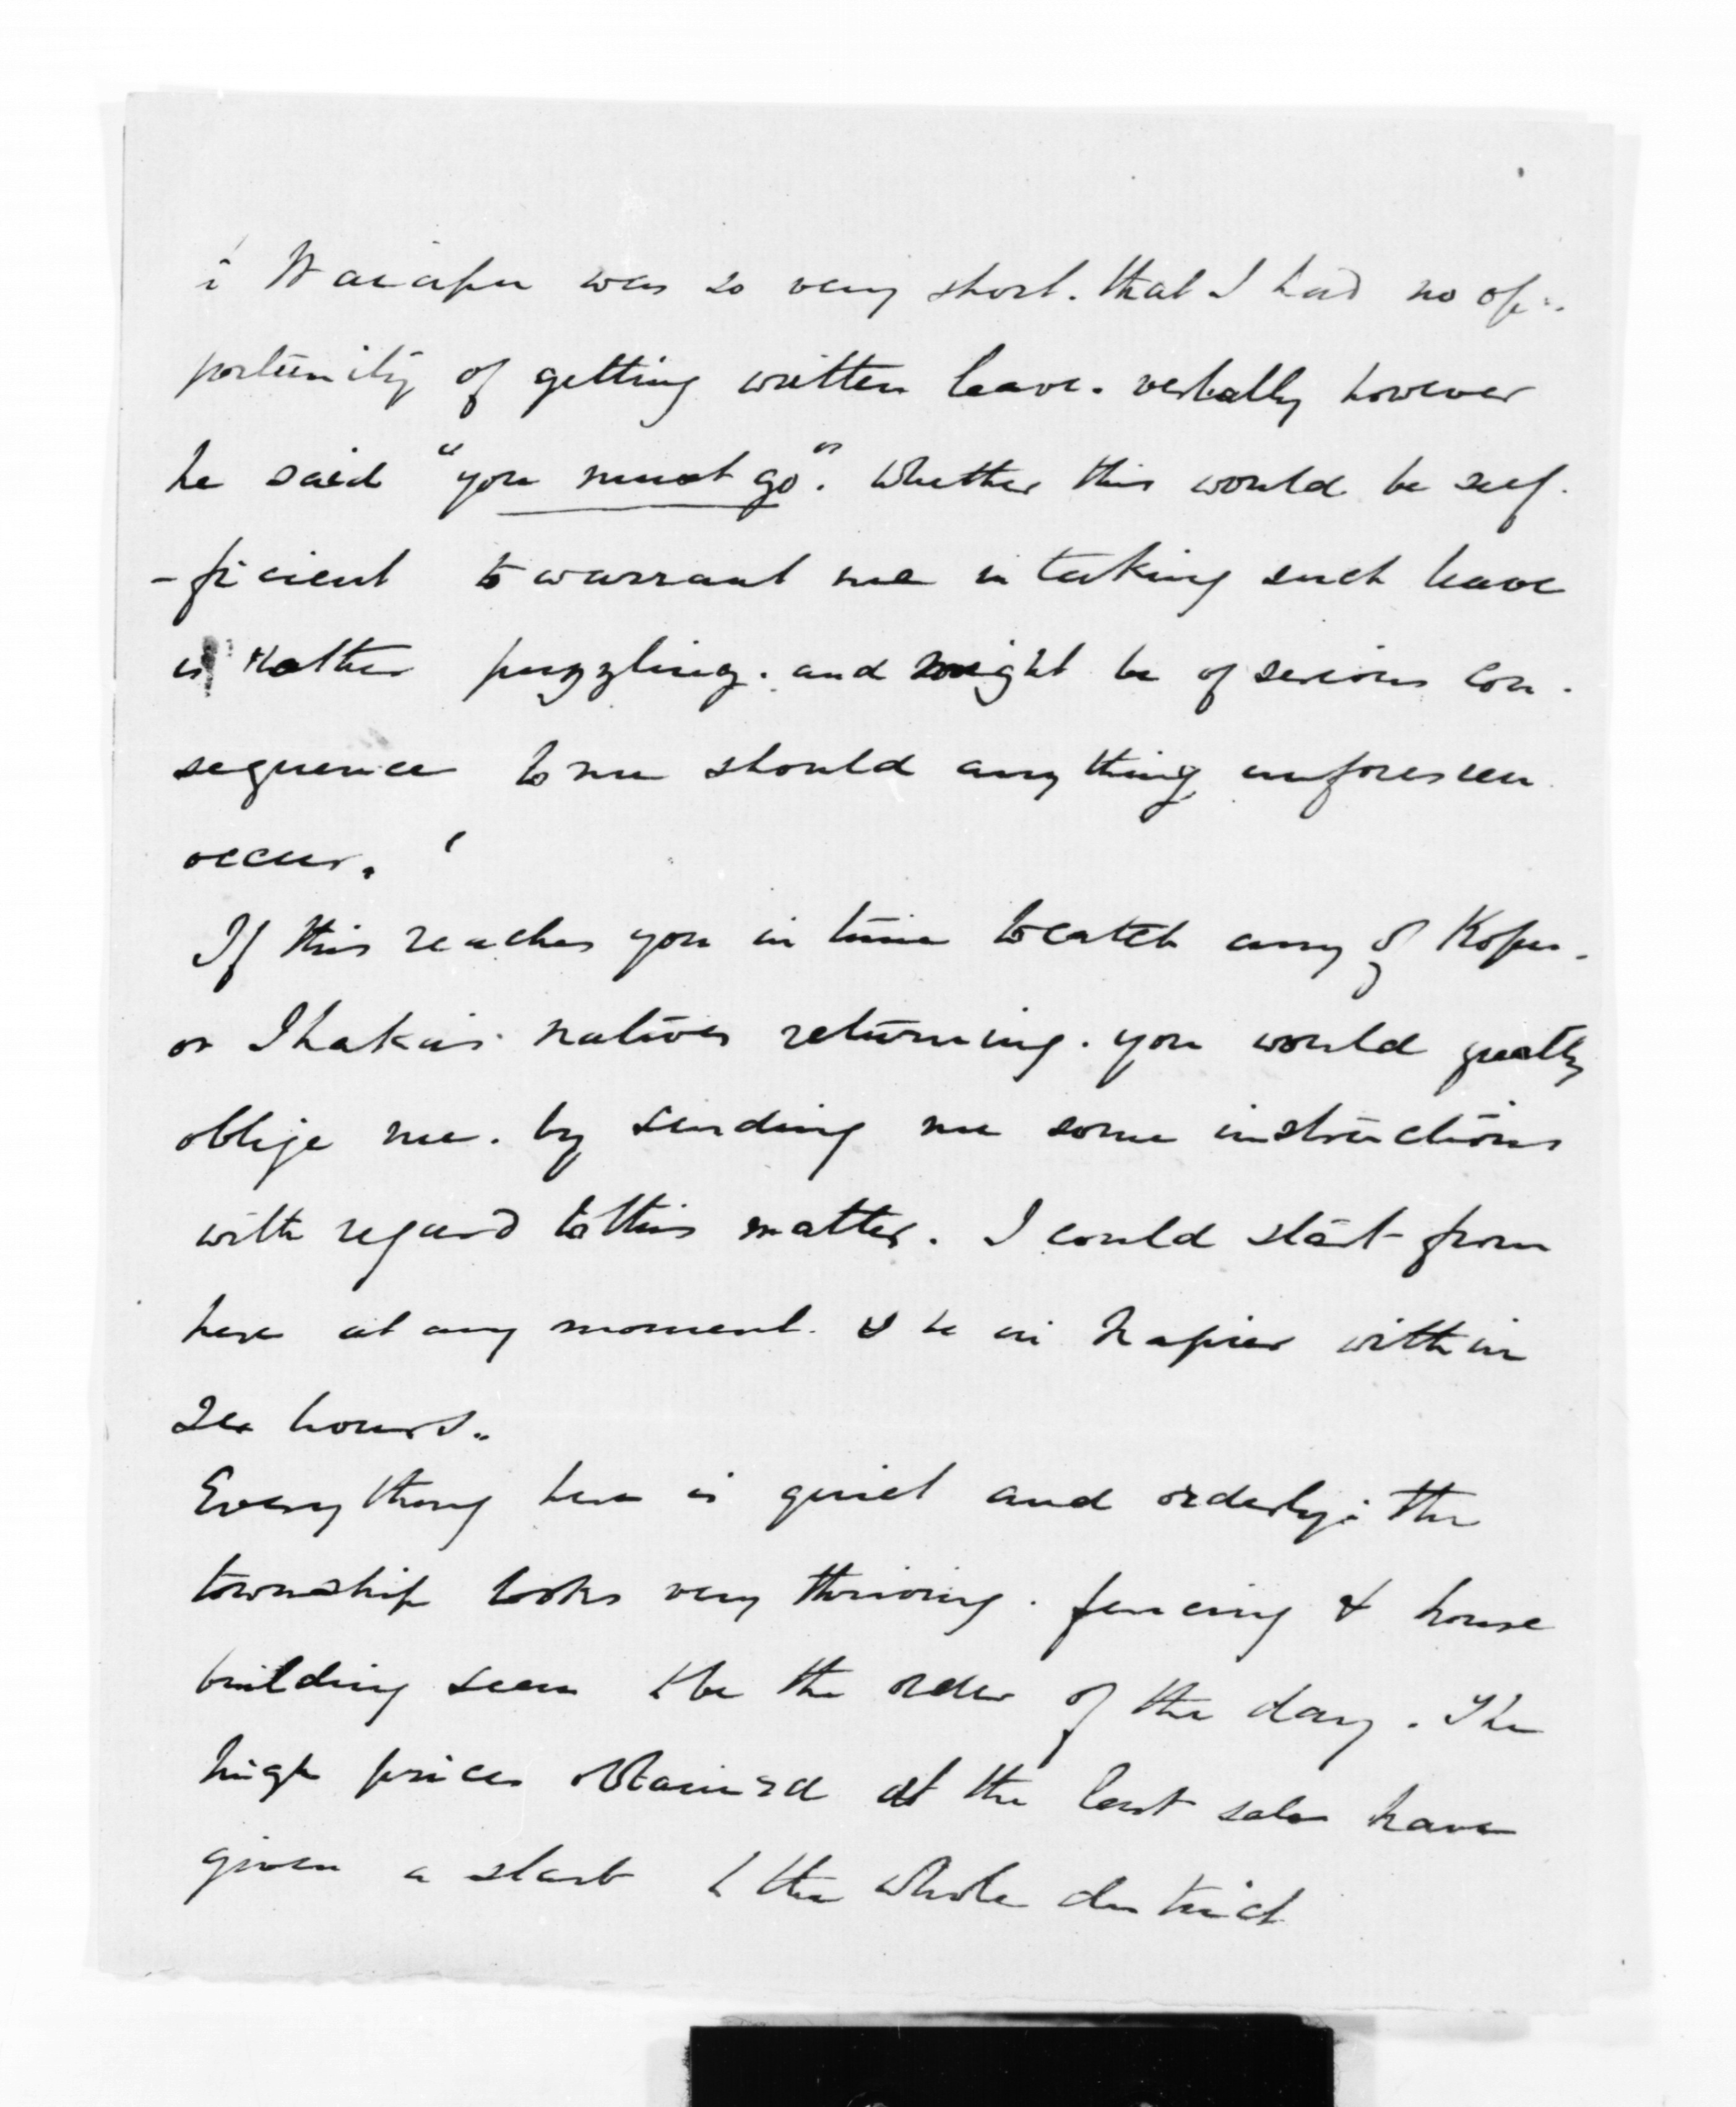 i Waiapu was so very short. that I had no op-
portunity of getting written leave. verbally however
he said "you must go". Whether this would be suf-
-ficient to warrant me in taking such leave
is rather puzzling. and might be of serious con-
sequence to me should any thing unforeseen
occur.
If this reaches you in time to catch any of Kopu-
or Ihakas natives returning. you would greatly
oblige me. by sending me some instructions
with regard to this matter. I could start from
here at any moment. & be in Napier within
hours.
Every thing here is quiet and orderly: the
township looks very thriving. fencing & house
building seem to be the order of the day. The
high prices obtained at the last sale have
given a start to the whole district